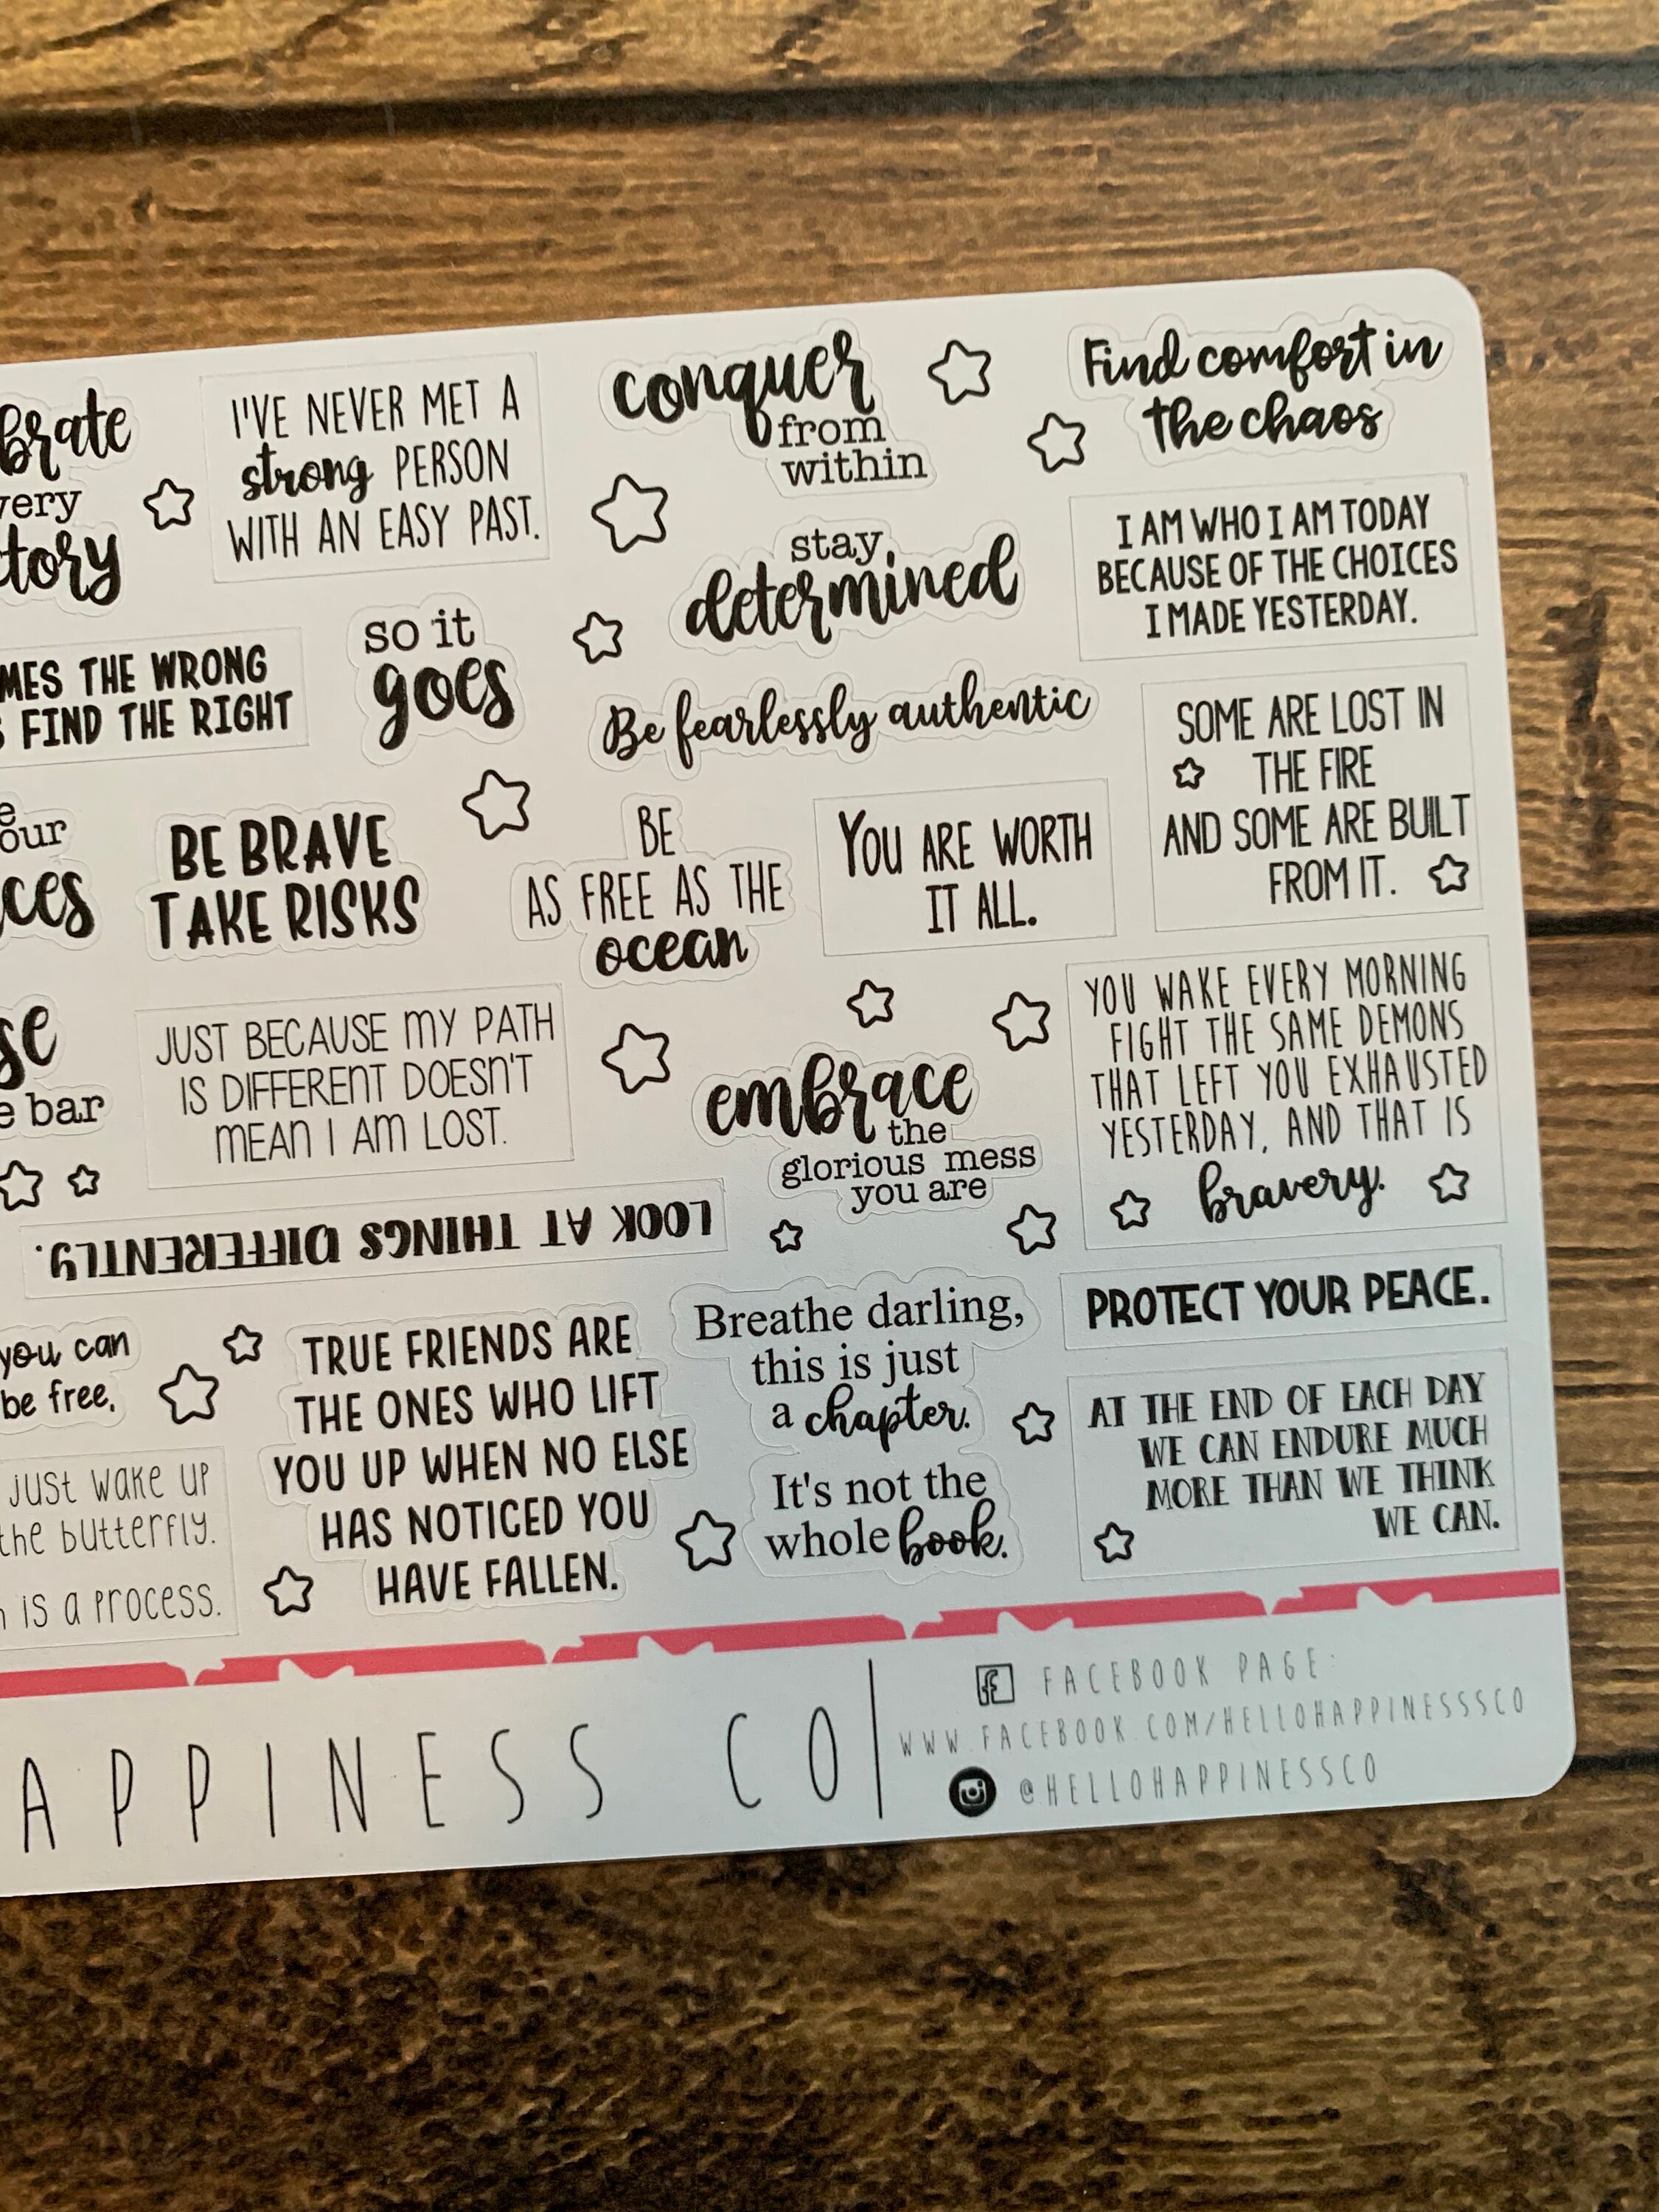 brate
very
tory
I'VE NEVER MET A
strong PERSON
WITH AN EASY PAST.
conquer
from
within
Find comfort in
the chaos
stay
determined
I AM WHO I AM TODAY
BECAUSE OF THE CHOICES
I MADE YESTERDAY.
MES THE WRONG
S FIND THE RIGHT
so it
goes
Be fearlessly authentic
SOME ARE LOST IN
THE FIRE
AND SOME ARE BUILT
FROM IT.
e
our
ces
BE BRAVE
TAKE RISKS
BE
AS FREE AS THE
ocean
YOU ARE WORTH
IT ALL.
YOU WAKE EVERY MORNING
FIGHT THE SAME DEMONS
THAT LEFT YOU EXHAUSTED
YESTERDAY, AND THAT IS
bravery.
se
e bar
JUST BECAUSE MY PATH
IS DIFFERENT DOESN'T
MEAN I AM LOST.
embrace
the
glorious mess
you are
LOOK AT THINGS DIFFERENTLY.
you can
be free,
TRUE FRIENDS ARE
THE ONES WHO LIFT
YOU UP WHEN NO ELSE
HAS NOTICED YOU
HAVE FALLEN.
Breathe darling,
this is just
a chapter.
It's not the
whole book.
PROTECT YOUR PEACE.
AT THE END OF EACH DAY
WE CAN ENDURE MUCH
MORE THAN WE THINK
WE CAN.
just wake up
the butterfly.
is a process.
APPINESS CO
FACEBOOK PAGE:
WWW.FACEBOOK.COM/HELLOHAPPINESSSCO
@HELLOHAPPINESSCO